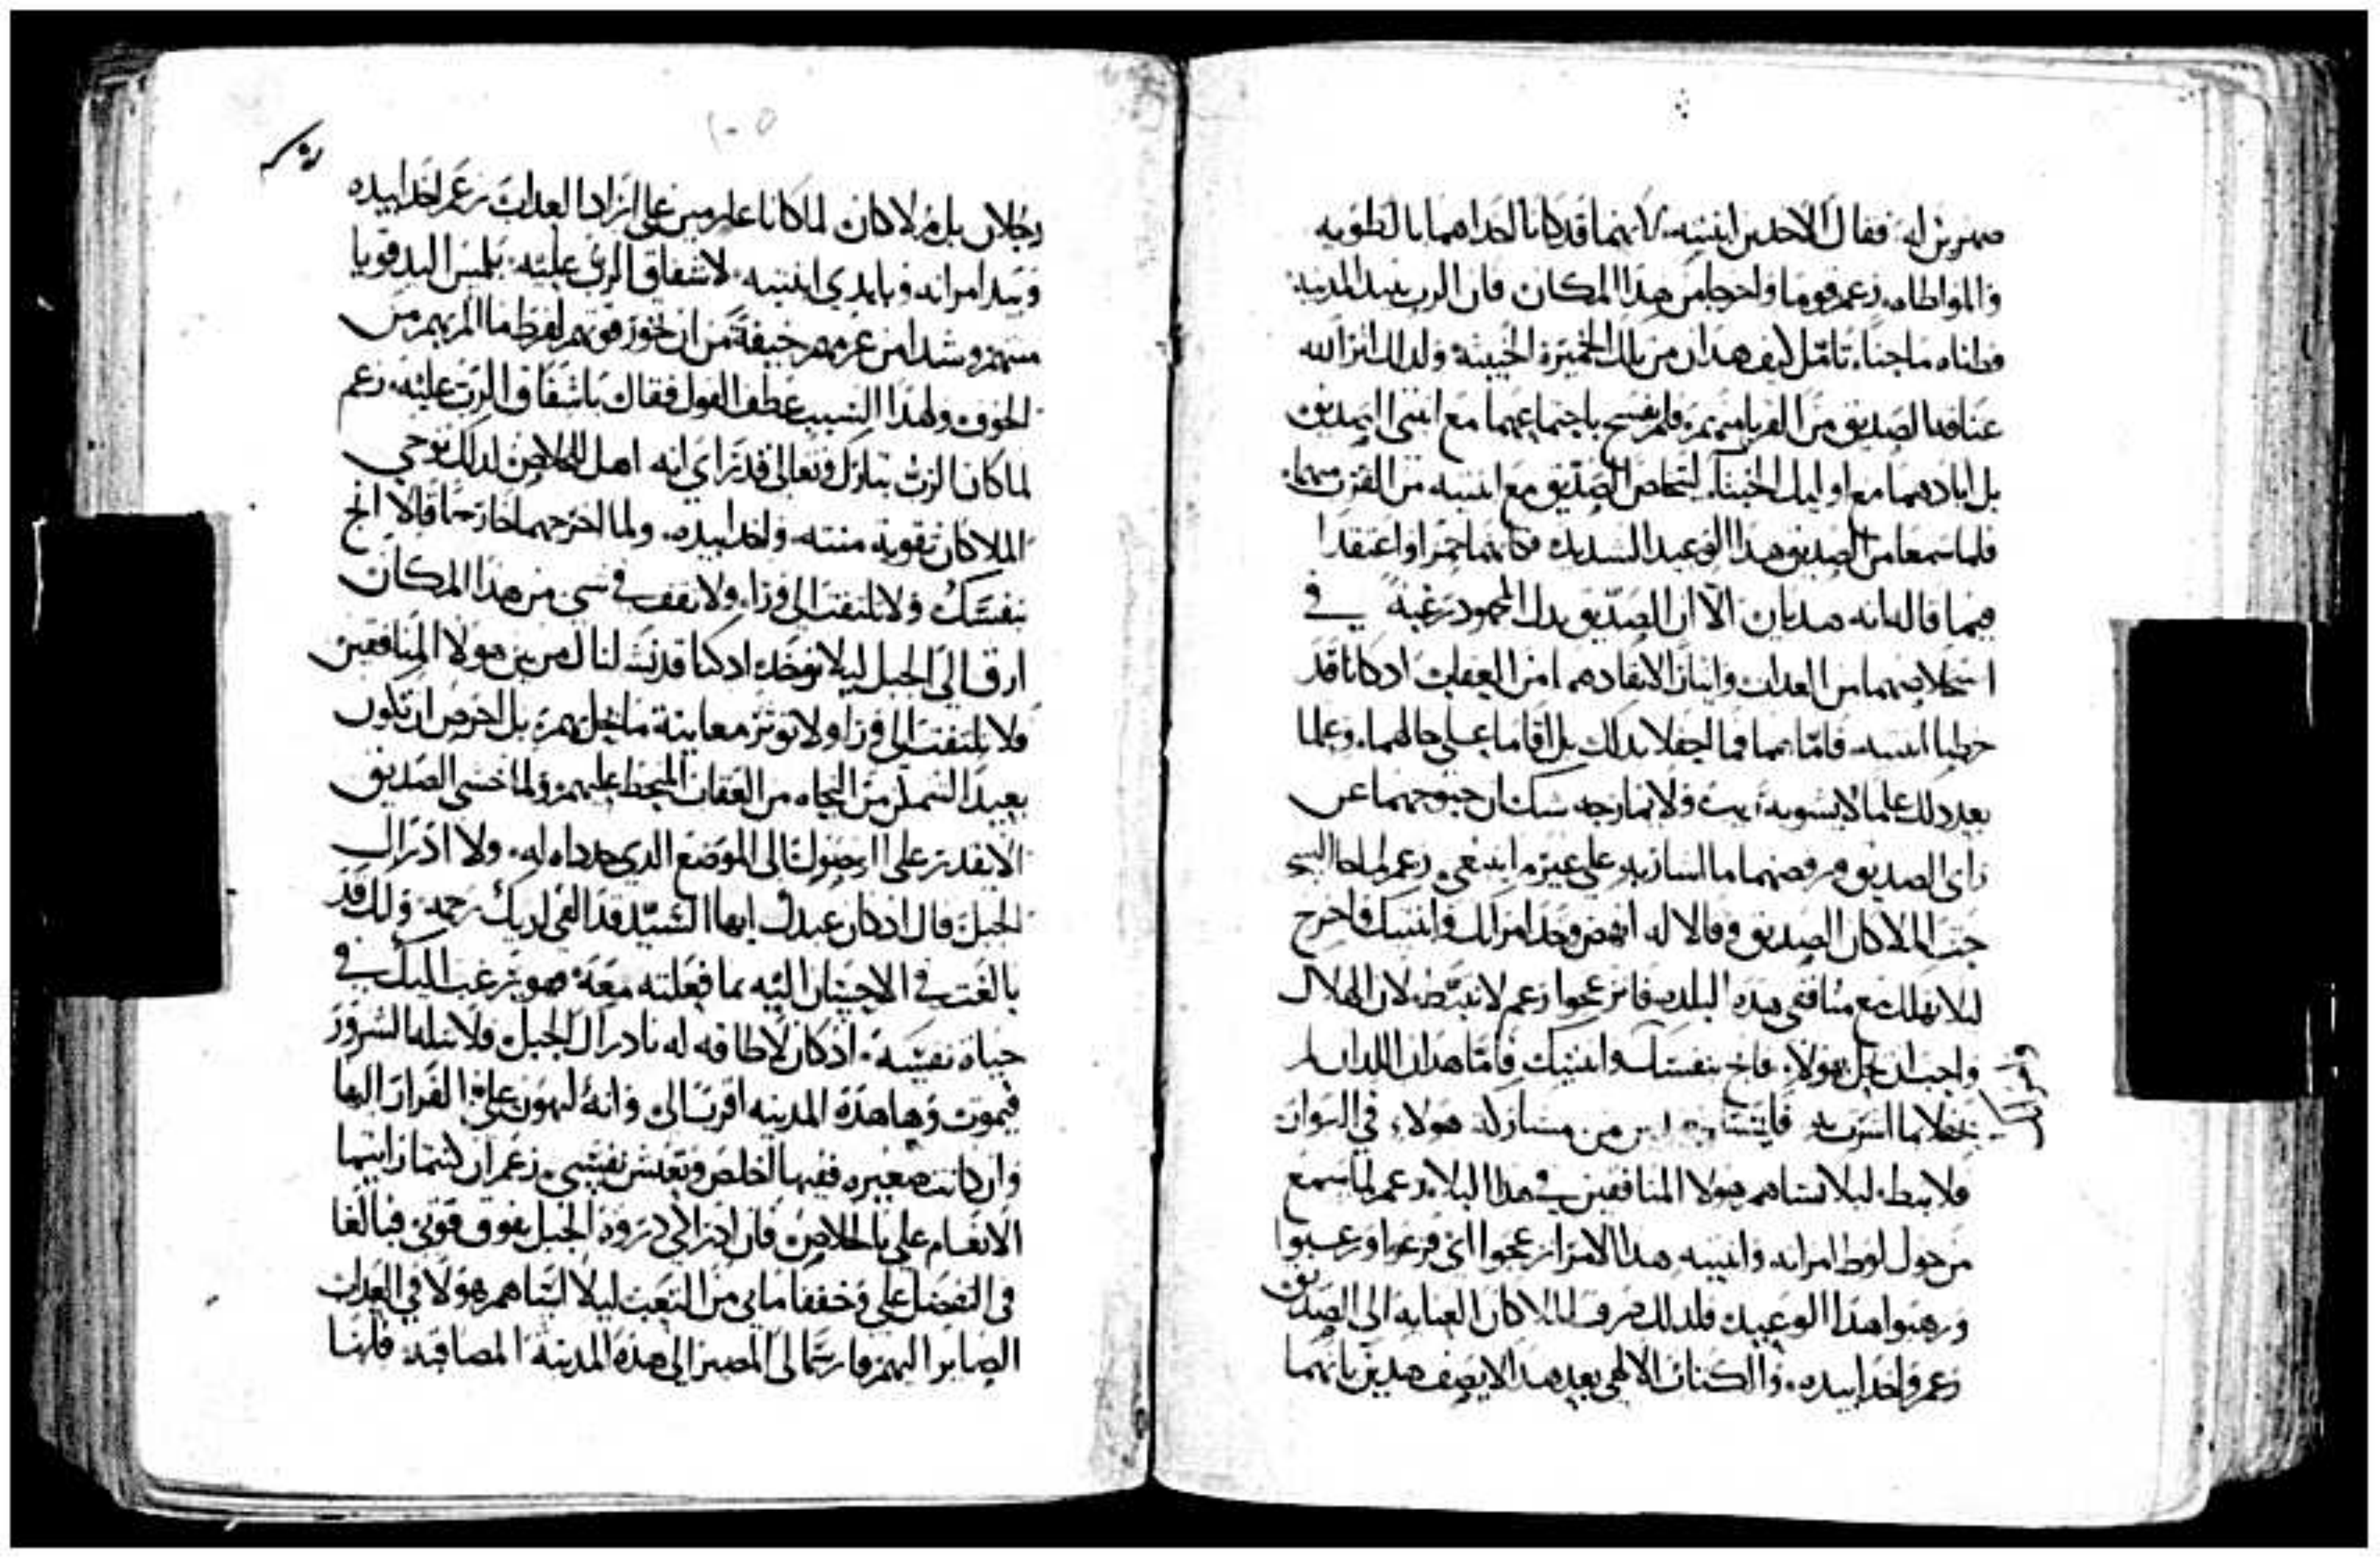 صهرين له فقال للاخدين ابنتيه لانهما قد كانا اخداهما بالخطوبه
والمواطاه زعم قوما واخرجا من هذا المكان فان الرب يبيد المدينة
وظناه ماجنا تامل كيف هدان من تلك الخميرة الخبيثة ولدلك انزا الله
عنافدا الصديق من القربا منهم ولم يفسح باجتماعهما مع ابنتي الصديق
بل ابادهما مع اوليك الخبثا ليتخلص الصديق مع ابنتيه من القرب منهما
فلما سمعا من الصديق هدا الوعيد الشديد
فيما قاله انه هديان الا ان الصديق بدل المجهود رغبة في
استخلاصهما من العداب وايثارا لانقادهما من العقاب ادكانا قد
خطبا ابنتيه فاما هما فما احفلا بدلك بل اقاما على حالهما وعلما
بعد دلك علما لا يشوبه ريب ولا يمازجه شك ان جنوحهما عن
راي الصديق ورفضهما ما اشار به على غير ما ينبغي زعم لما جا السحر
حتا الملاكان الصديق وقالا له انهض وخد امراتك وابنتيك فاخرج
ليلا تهلك مع منافقي هده البلده فانزعجوا زعم لا تتبط لان الهلاك
واجب ان يحل بهولاء فانج بنفسك وابنتيك فاما هدان اللدان لم
يحفلا بما اشرت به من مشاركة هولاء في البوار
فلا تبط ليلا تساهم هولا المنافقين في هدا البلاء زعم لما سمع
من حول لوط امراته وابنتيه هدا الامر انزعجوا اي فزعوا ورعبوا
ورهبوا هدا الوعيد فلدلك صرف الملاكان العنايه الى الصديق
زعم واخدا بيده والكتاب الالهي بعد هدا لا يصف هدين بانهما
رجلان بل ملاكان لما كانا عازمين على انزال العداب زعم اخدا بيده
وبيد امراته وبايدي ابنتيه لاشفاق الرب عليه بلمس اليد قويا
منتهم وشدا من عزمهم خيفة من ان تخور قوتهم لفرط ما الم بهم من
الخوف ولهدا السبب عطف القول فقال باشفاق الرب عليه زعم
لما كان الرب تبارك وتعالى قد راي انه اهل للخلاص لدلك توخي
الملاكان تقوية منته واخدا بيده ولما اخرجهما خارجا قالا انج
بنفسك ولا تلتفت الى ورا ولا تقف في شي من هدا المكان
ارق الى الجبل ليلا توخد ادكنا قد نشلناك من بين هولا المنافقين
فلا تلتفت الى ورا ولا توثر معاينة ما يحل بهم بل احرص ان تكون
بعيدا لتتمكن من النجاه من العقاب المحيط بهم ولما خشي الصديق
الا يقدر على الوصول الى الموضع الدي حدداه له ولا ادراك
الجبل قال ادكان عبدك ايها السيد قد القى لديك رحمه ولك قد
بالغت في الاحسان اليه بما فعلته معه فهو يرغب اليك في
حياة نفسه ادكان لا طاقه له بادراك الجبل فلا تنله الشرور
فيموت وها هده المدينه اقرب الي وانه ليهون علي الفرار اليها
وان كانت صغيره ففيها اتخلص وتعيش نفسي زعم ان كنتما رايتما
الانعام علي بالخلاص فان ادراكي دروة الجبل يفوق قوتي فبالغا
في التفضل علي وخففا ما بي من التعب ليلا اساهم هولا في العداب
الصاير اليهم وارسما لي المصير الى هده المدينه المصاقبه فانها